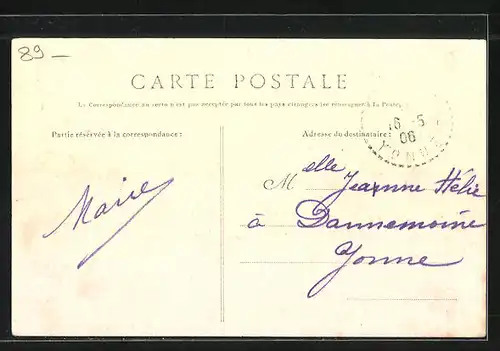 89 —
CARTE POSTALE
La Correspondance au verso n'est pas acceptée par tous les pays étrangers (se renseigner à la Poste)
Partie réservée à la correspondance :
Adresse du destinataire :
16 - 5
06
YONNE
Marie
Melle Jeanne Hélie
à Dannemoine
Yonne